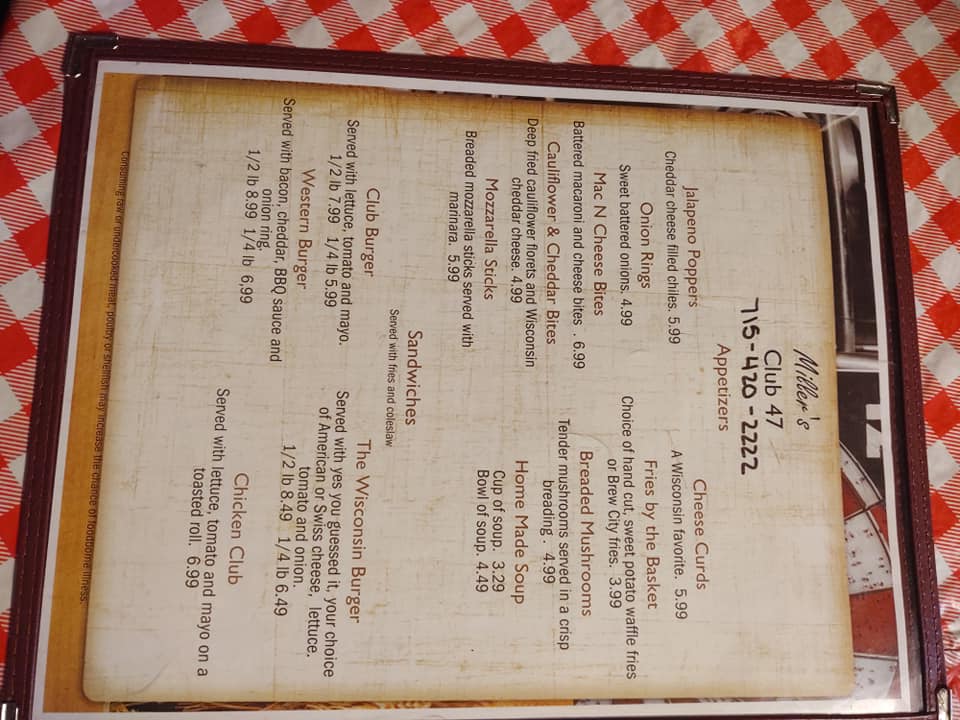 Miller's
Club 47
715-420-2222
Appetizers
Jalapeno Poppers
Cheddar cheese filled chiles. 5.99
Onion Rings
Sweet battered onions. 4.99
Mac N Cheese Bites
Battered macaroni and cheese bites . 6.99
Cauliflower & Cheddar Bites
Deep fried cauliflower florets and Wisconsin
cheddar cheese. 4.99
Mozzarella Sticks
Breaded mozzarella sticks served with
marinara. 5.99
Cheese Curds
A Wisconsin favorite. 5.99
Fries by the Basket
Choice of hand cut, sweet potato waffle fries
or Brew City fries. 3.99
Breaded Mushrooms
Tender mushrooms served in a crisp
breading . 4.99
Home Made Soup
Cup of soup. 3.29
Bowl of soup. 4.49
Sandwiches
Served with fries and coleslaw
Club Burger
Served with lettuce, tomato and mayo.
1/2 lb 7.99 1/4 lb 5.99
Western Burger
Served with bacon, cheddar, BBQ sauce and
onion ring,
1/2 lb 8.99 1/4 lb 6.99
The Wisconsin Burger
Served with yes you guessed it, your choice
of American or Swiss cheese, lettuce.
tomato and onion.
1/2 lb 8.49 1/4 lb 6.49
Chicken Club
Served with lettuce, tomato and mayo on a
toasted roll. 6.99
Consuming raw or undercooked meat, poultry or shellfish may increase the chance of foodborne illness.